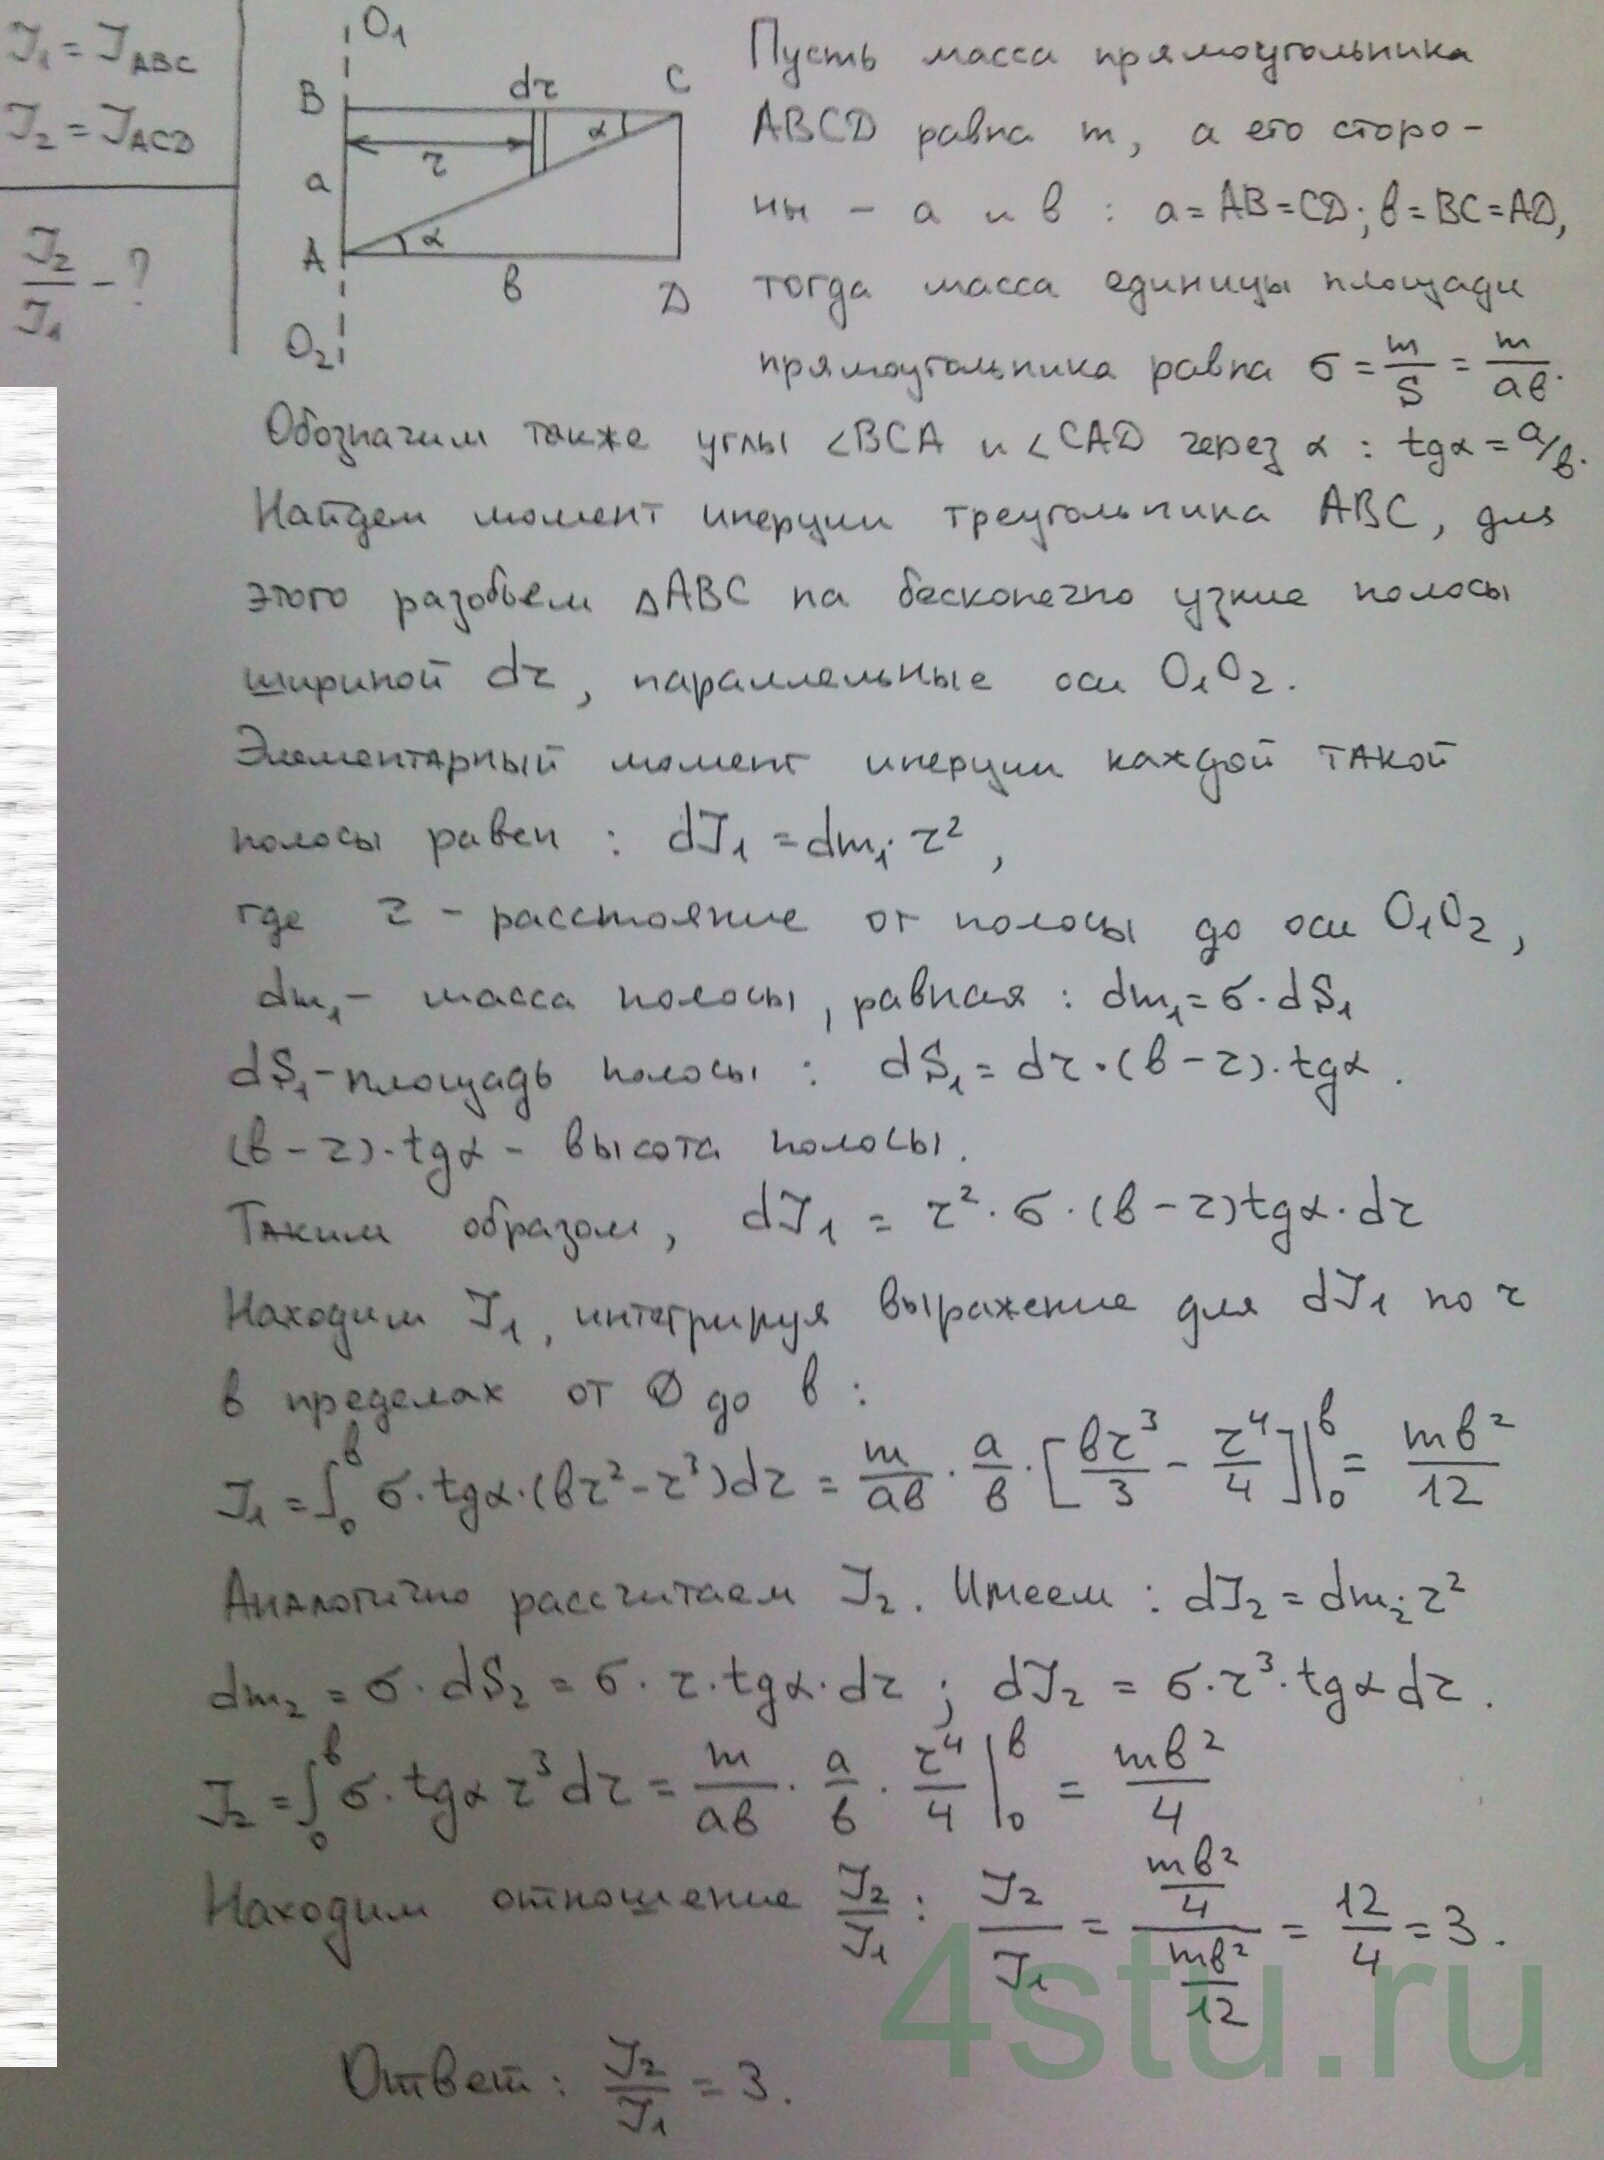 J₁ = J_ABC
J₂ = J_ACD
J₂/J₁ - ?
O₁
B
dr
C
α
r
a
α
A
в
D
O₂
Пусть масса прямоугольника
ABCD равна m, а его сторо-
ны - a и в : a = AB = CD; в = BC = AD,
тогда масса единицы площади
прямоугольника равна σ = m/S = m/aв.
Обозначим также углы <BCA и <CAD через α : tgα = a/в.
Найдем момент инерции треугольника ABC, для
этого разобьем △ABC на бесконечно узкие полосы
шириной dr, параллельные оси O₁O₂.
Элементарный момент инерции каждой такой
полосы равен : dJ₁ = dm₁·r²,
где r - расстояние от полосы до оси O₁O₂,
dm₁ - масса полосы, равная : dm₁ = σ·dS₁
dS₁ - площадь полосы : dS₁ = dr·(в-r)·tgα.
(в-r)·tgα - высота полосы.
Таким образом, dJ₁ = r²·σ·(в-r)tgα·dr
Находим J₁, интегрируя выражение для dJ₁ по r
в пределах от 0 до в :
J₁ = ∫₀ᵇ σ·tgα·(вr²-r³)dr = m/aв · a/в · [вr³/3 - r⁴/4]|₀ᵇ = mв²/12
Аналогично рассчитаем J₂. Имеем : dJ₂ = dm₂·r²
dm₂ = σ·dS₂ = σ·r·tgα·dr ; dJ₂ = σ·r³·tgα dr.
J₂ = ∫₀ᵇ σ·tgα r³dr = m/aв · a/в · r⁴/4 |₀ᵇ = mв²/4
Находим отношение J₂/J₁ : J₂/J₁ = (mв²/4)/(mв²/12) = 12/4 = 3.
Ответ : J₂/J₁ = 3.
4stu.ru